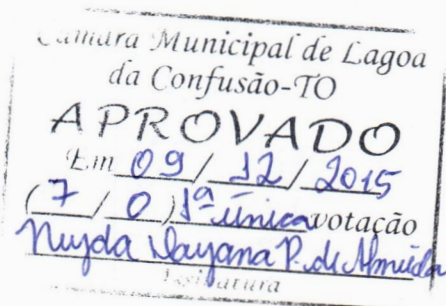 Câmara Municipal de Lagoa
da Confusão-TO
APROVADO
Em 09 / 12 / 2015
( 7 / 0 ) 1ª única votação
Dayana P. de Almeida
Assinatura